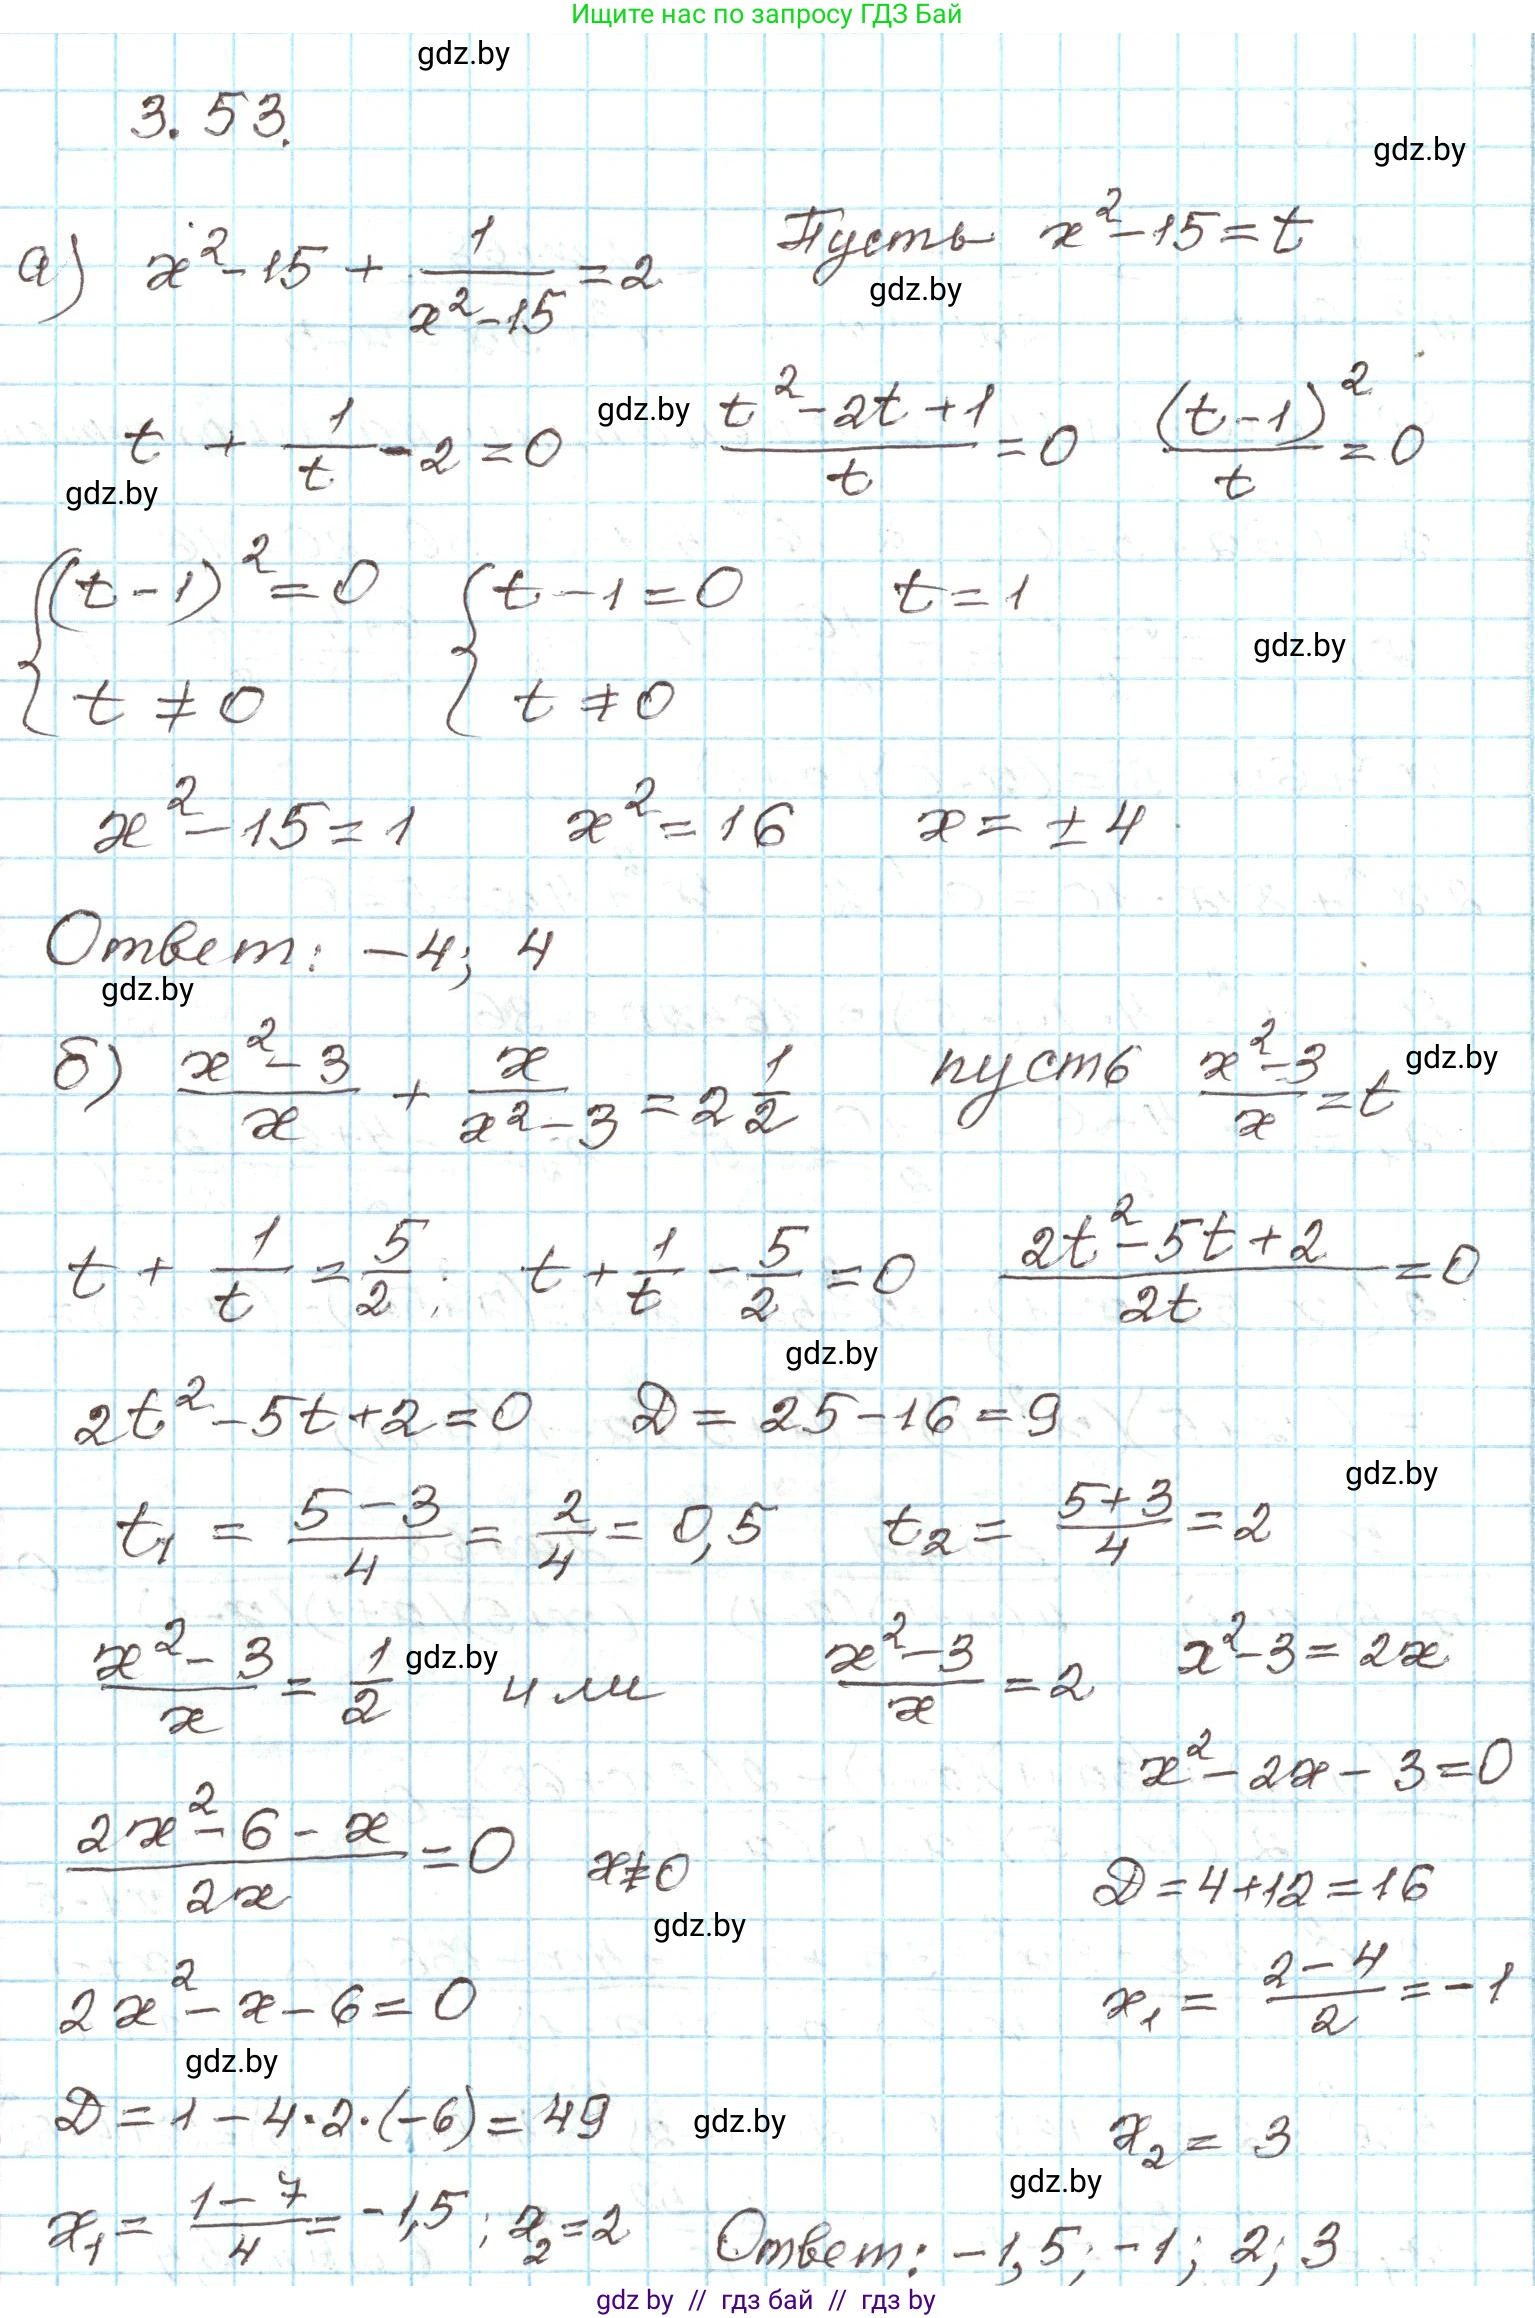 Ищите нас по запросу ГДЗ Бай
gdz.by
3.53.
gdz.by
а) x² - 15 + 1/(x² - 15) = 2 Пусть x² - 15 = t
gdz.by
t + 1/t - 2 = 0 gdz.by (t² - 2t + 1)/t = 0 (t - 1)²/t = 0
gdz.by
{(t - 1)² = 0 {t - 1 = 0 t = 1
gdz.by
t ≠ 0 t ≠ 0
x² - 15 = 1 x² = 16 x = ± 4
Ответ: -4; 4
gdz.by
б) (x² - 3)/x + x/(x² - 3) = 2 1/2 пусть (x² - 3)/x = t gdz.by
t + 1/t = 5/2; t + 1/t - 5/2 = 0 (2t² - 5t + 2)/2t = 0
gdz.by
2t² - 5t + 2 = 0 D = 25 - 16 = 9
gdz.by
t₁ = (5 - 3)/4 = 2/4 = 0,5 t₂ = (5 + 3)/4 = 2
(x² - 3)/x = 1/2 gdz.by или (x² - 3)/x = 2 x² - 3 = 2x
x² - 2x - 3 = 0
(2x² - 6 - x)/2x = 0 x ≠ 0 D = 4 + 12 = 16
gdz.by
2x² - x - 6 = 0 x₁ = (2 - 4)/2 = -1
gdz.by
D = 1 - 4·2·(-6) = 49 gdz.by x₂ = 3
gdz.by
x₁ = (1 - 7)/4 = -1,5; x₂ = 2 Ответ: -1,5; -1; 2; 3
gdz by // гдз бай // гдз by